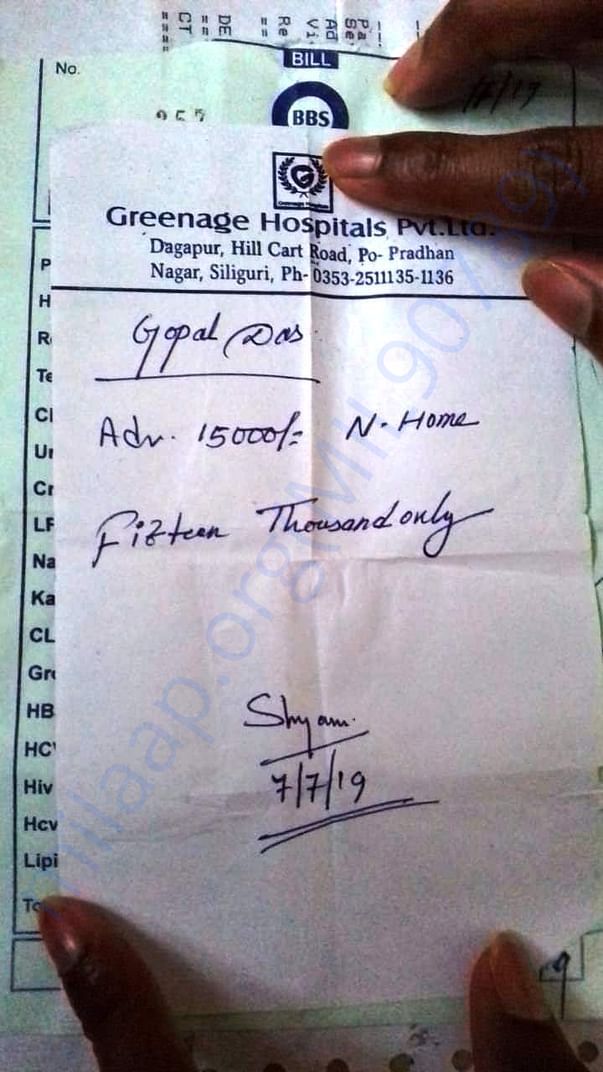 DE
CT
Re
Vi
Ad
Se
Pa
BILL
No.
BBS
Greenage Hospitals Pvt.Ltd.
Dagapur, Hill Cart Road, Po- Pradhan
Nagar, Siliguri, Ph- 0353-2511135-1136
Gopal Das
Adv. 15000/= N. Home
Fifteen Thousand only
Shyam.
7/7/19
P
H
R
Te
Cl
Ur
Cr
LF
Na
Ka
CL
Gr
HB
HC
Hiv
Hcv
Lipi
To
milaap.org